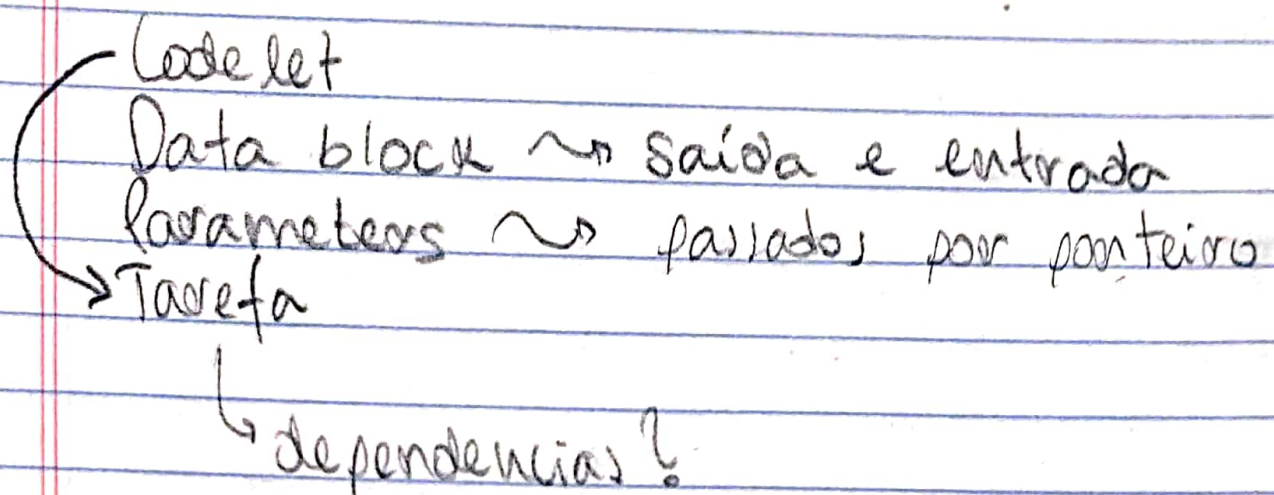 Codelet
Data block ⇝ saída e entrada
Parameters ⇝ passados por ponteiro
Tarefa
dependencias?